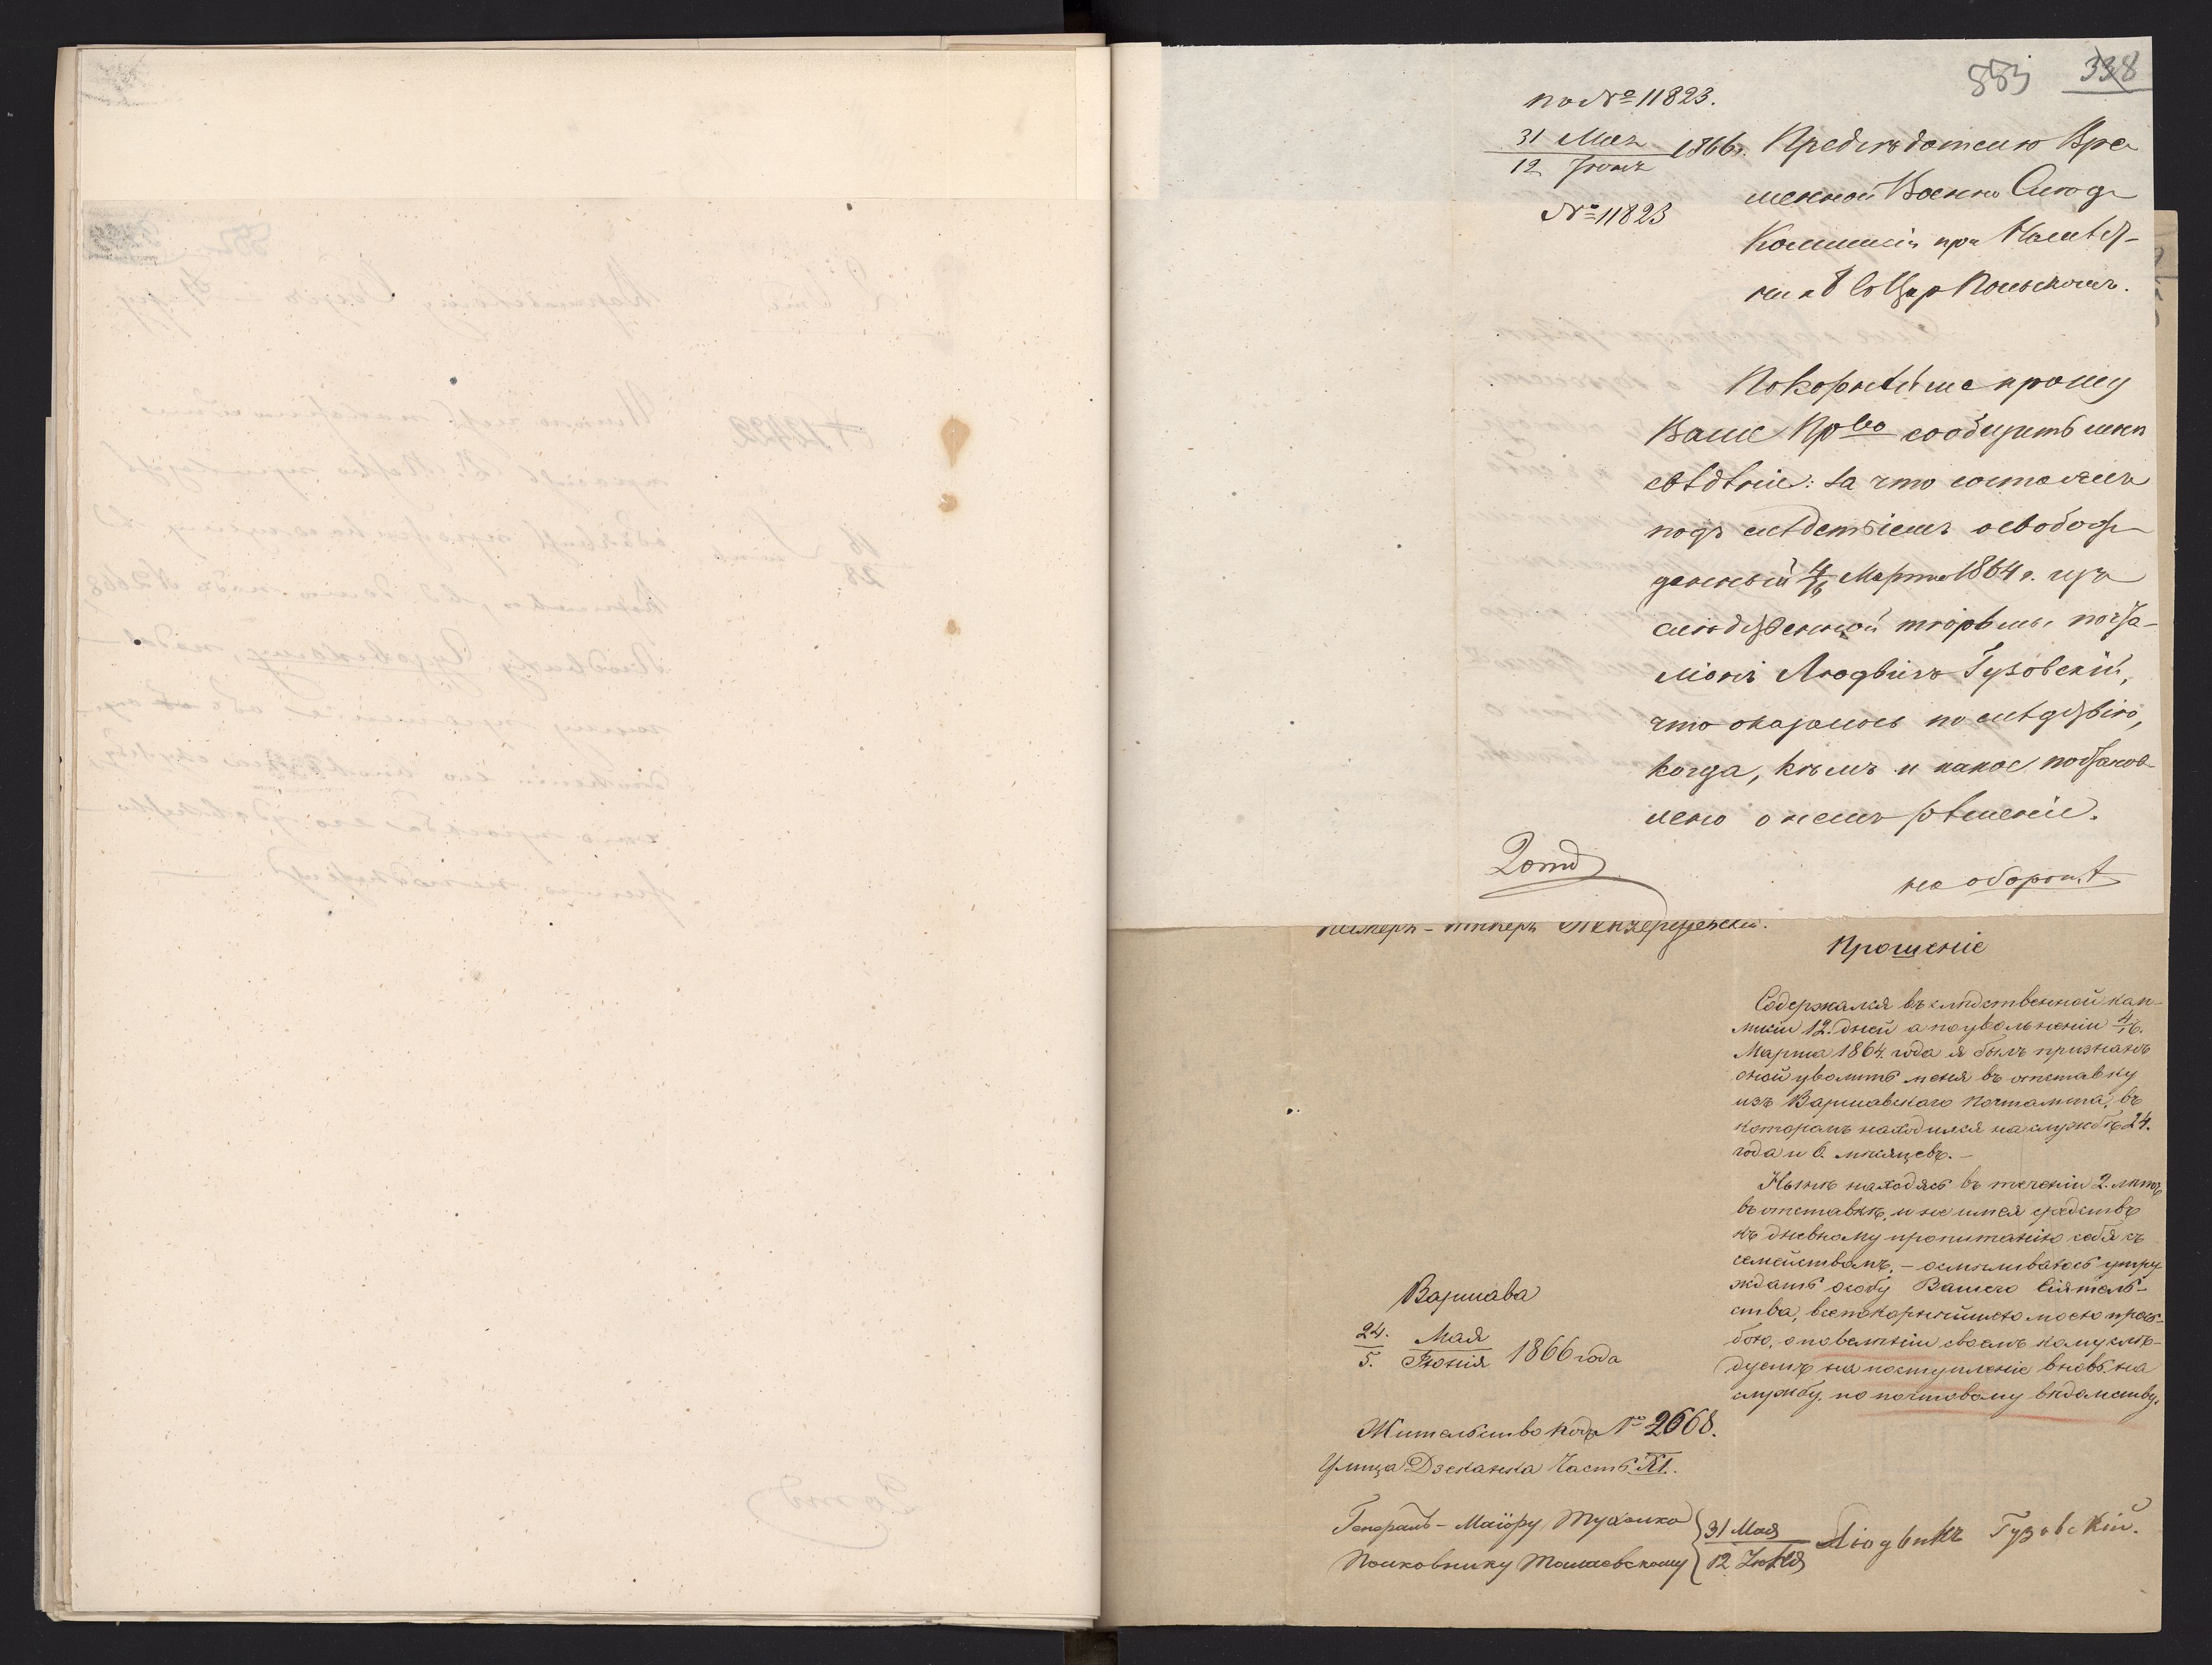 553 338
по № 11823.
31 Мая
12 Іюня 1866 г.
№ 11823
Предсѣдателю Вре
менной Военно Слѣд
Коммисіи при Намѣст-
никѣ въ Цар Польскомъ.
Покорнѣйше прошу
Ваше Пр во сообщить мнѣ
свѣдѣніе: за что состоялъ
подъ слѣдствіемъ освобож
денный 4/16 Марта 1864 г. изъ
слѣдственной тюрьмы почта-
ліонъ Людвигъ Гузовскій,
что оказалось по слѣдствію,
когда, кѣмъ и какое постанов
лено о немъ рѣшеніе.
на оборотѣ
Прошеніе
Содержался въ слѣдственной кам-
мисіи 12. дней а по увольненіи 4/16.
Марта 1864. года я былъ признанъ
оной уволить меня въ отставку
изъ Варшавскаго Почтамта, въ
которомъ находился на службѣ 24.
года и 6. мѣсяцевъ. –
Нынѣ находясь въ теченіи 2. лѣтъ
въ отставкѣ, и не имѣя средствъ
къ дневному пропитанію себя съ
семействомъ, – осмѣливаюсь утру
ждать особу Вашего Сіятель-
ства, всепокорнѣйшею моею прось-
бою, о повелѣніи своемъ кому слѣ-
дуетъ на поступленіе вновь на
службу по почтовому вѣдомству.
Варшава
24. Мая
5. Іюнія 1866 года
Жительство подъ № 2668.
Улица Дзеканка Часть XI.
Генералъ-Маіору Тухолка
Полковнику Толшевскому
31 Мая
12 Іюня
Людвикъ Гузовскій.